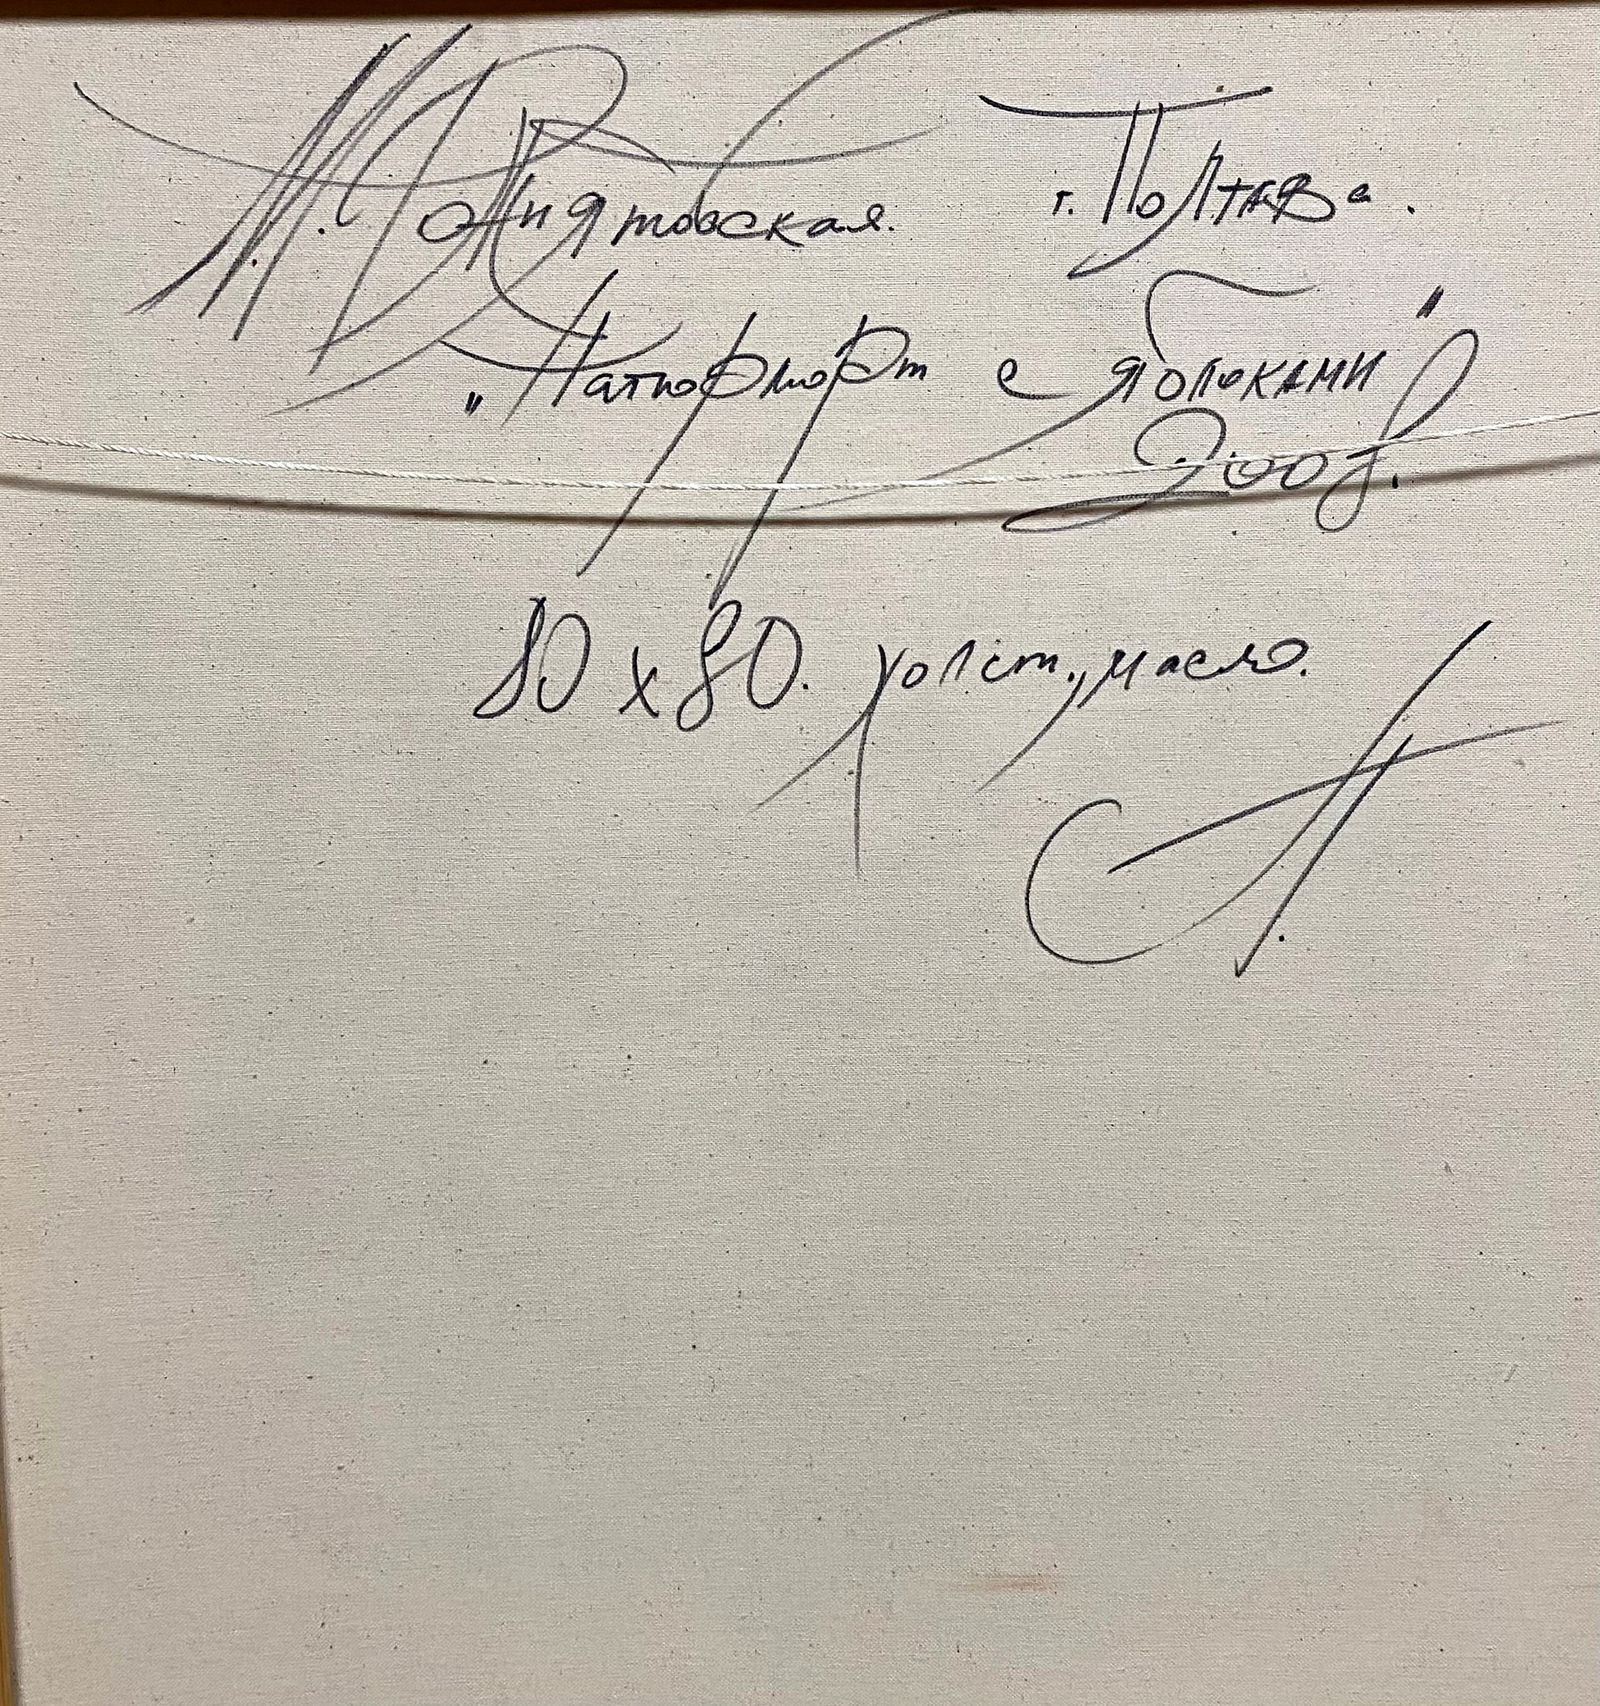 М. Понятовская. г. Полтава.
„Натюрморт с яблоками"
2008.
80 х 80. холст., масло.